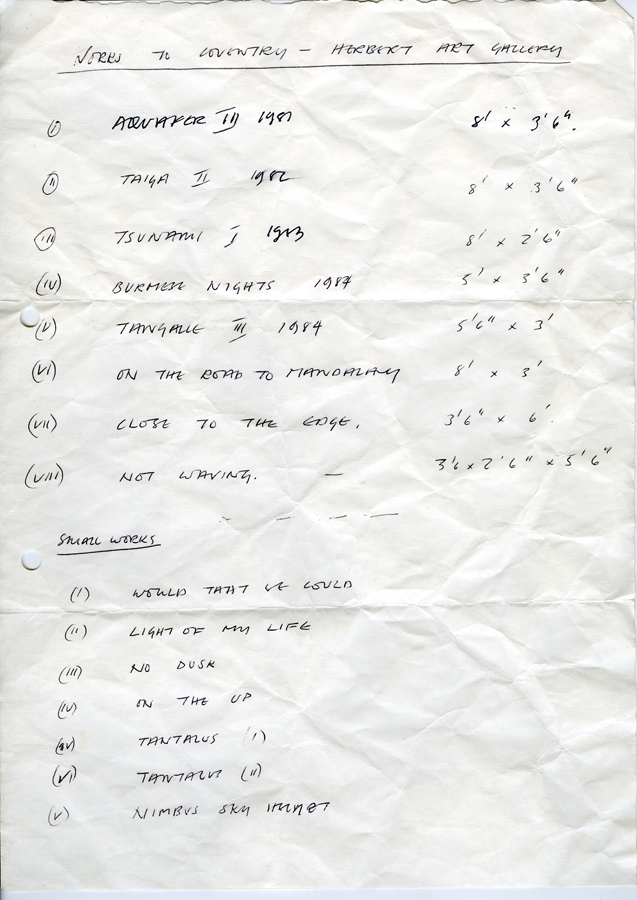 WORKS TO COVENTRY – HERBERT ART GALLERY
(I) III 1981 8' x 3'6".
(II) TAIGA II 1982 8' x 3'6"
(III) TSUNAMI I 1983 8' x 2'6"
(IV) BURMESE NIGHTS 1984 5' x 3'6"
(V) TANGALLE III 1984 5'6" x 3'
(VI) ON THE ROAD TO MANDALAY 8' x 3'
(VII) CLOSE TO THE EDGE. 3'6" x 6'.
(VIII) NOT WAVING. — 3'6 x 2'6" x 5'6"
SMALL WORKS
(I) WOULD THAT WE COULD
(II) LIGHT OF MY LIFE
(III) NO DUSK
(IV) ON THE UP
(V) TANTALUS (I)
(VI) TANTALUS (II)
(V) NIMBUS SKY HELMET